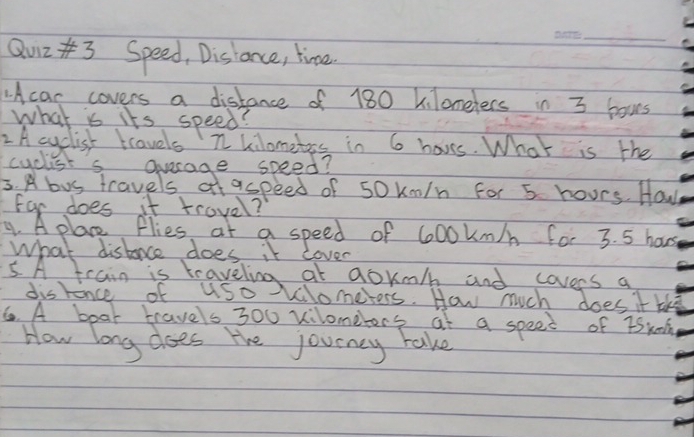 DATE:
Quiz #3 Speed, Distance, time.
1. A car covers a distance of 180 kilometers in 3 hours
What is its speed?
2 A cyclist travels 72 kilometers in 6 hours. What is the
cyclist's average speed?
3. A bus travels at a speed of 50 km/h for 5 hours. How
far does it travel?
4. A plane flies at a speed of 600 km/h for 3.5 hours
What distance does it cover
5. A train is traveling at 90 km/h and covers a
distance of 450 kilometers. How much does it take
6. A boat travels 300 kilometers at a speed of 75 km/h
How long does the journey take